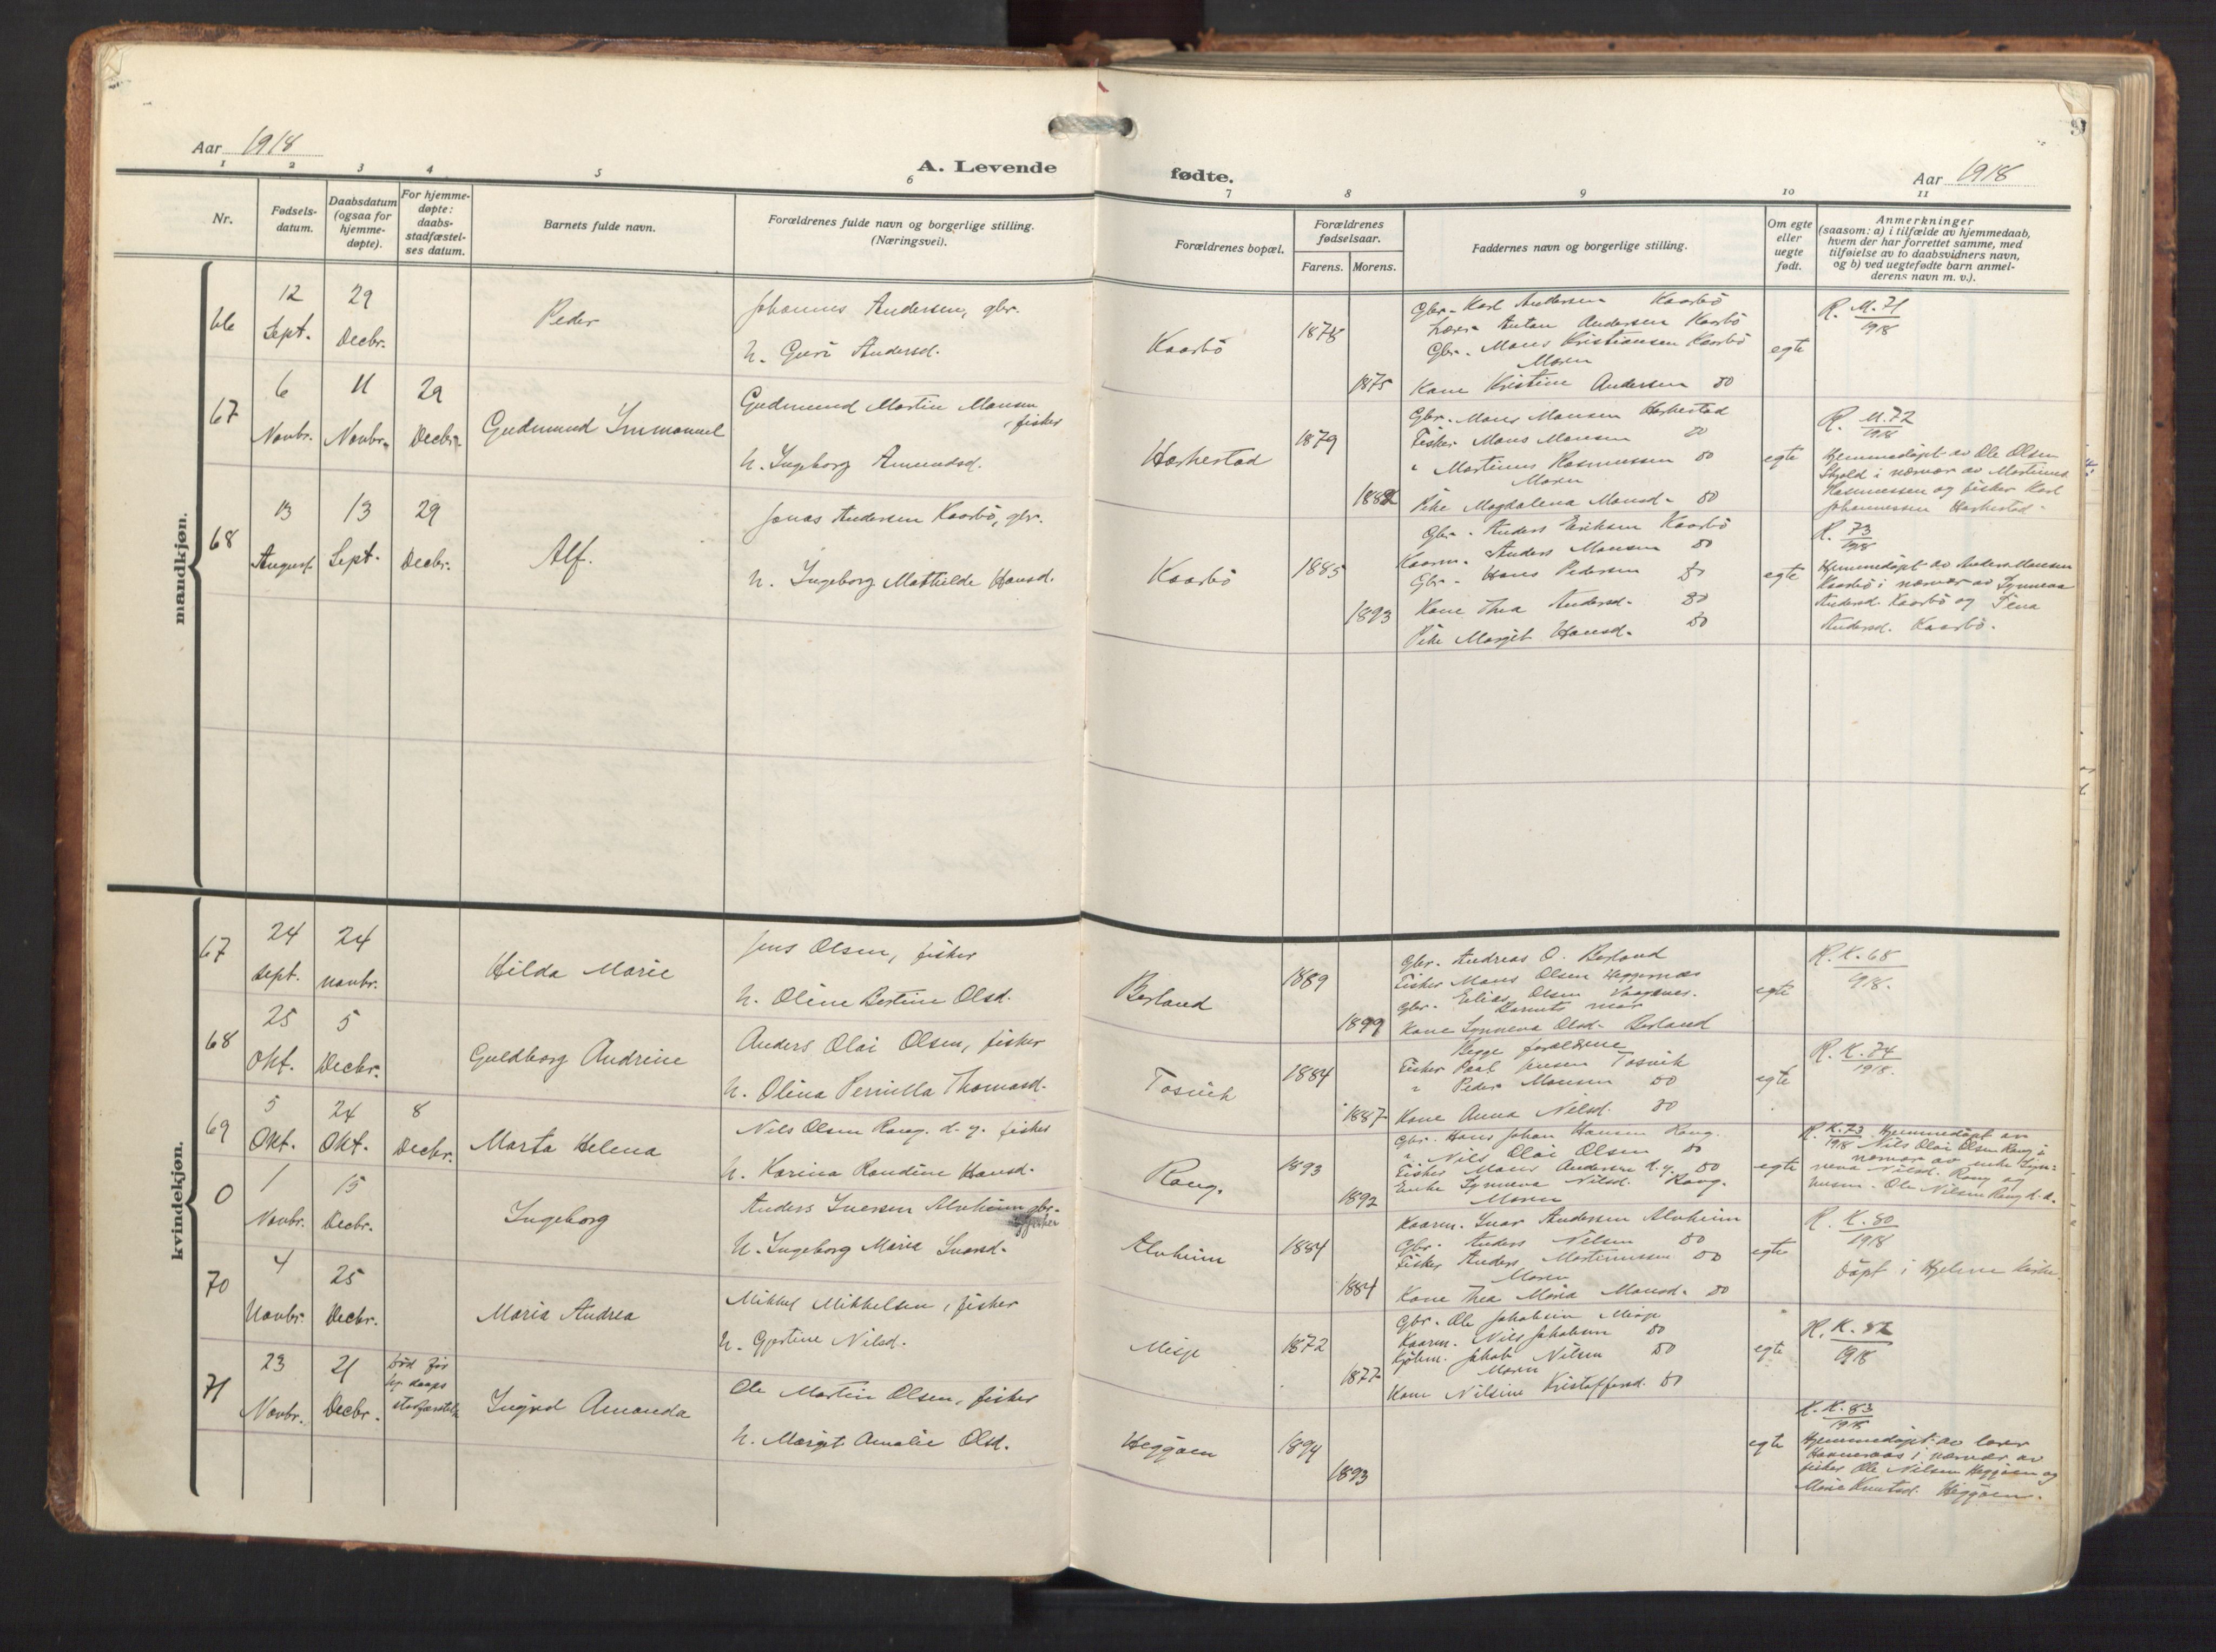 Aar 1918
A. Levende
fødte.
Aar 1918
9
1 2 3 4 5 6 7 8 9 10 11
Nr.
Fødsels-
datum.
Daabsdatum
(ogsaa for
hjemme-
døpte).
For hjemme-
døpte:
daabs-
stadfæstel-
ses datum.
Barnets fulde navn.
Forældrenes fulde navn og borgerlige stilling.
(Næringsvei).
Forældrenes bopæl.
Forældrenes
fødselsaar.
Farens. Morens.
Faddernes navn og borgerlige stilling.
Om egte
eller
uegte
født.
Anmerkninger
(saasom: a) i tilfælde av hjemmedaab,
hvem der har forrettet samme, med
tilføielse av to daabsvidners navn,
og b) ved uegtefødte barn anmel-
derens navn m. v.).
mandkjøn.
66
12
Sept.
29
Decbr.
Peder
Johannes Andersen, gbr.
h. Guri Andersd.
Kaarbö
1878
1875
Gbr. Karl Andersen Kaarbö
Lærer Anton Andersen Kaarbö
Gbr. Mons Kristiansen Kaarbö
Moren
Kone Kristine Andersen do
egte
R. M. 71
1918
67
6
Novbr.
11
Novbr.
29
Decbr.
Gudmund Immanuel
Gudmund Martin Monsen
, fisker
h. Ingeborg Amundsd.
Harkestad
1879
1882
Gbr. Mons Monsen Harkestad
Fisker Mons Monsen do
" Martinus Rasmussen do
Moren
Pike Magdalena Monsd. do
egte
R. M. 72
1918
Hjemmedöpt av Ole Olsen
Skjold i nærvær av Martinus
Rasmussen og fisker Karl
Johannessen Harkestad.
68
13
August.
13
Sept.
29
Decbr.
Alf.
Jonas Andersen Kaarbö, gbr.
h. Ingeborg Mathilde Hansd.
Kaarbö
1885
1893
Gbr. Anders Eriksen Kaarbö
Kaarm. Anders Monsen do
Gbr. Hans Pedersen do
Kone Thea Andersd. do
Pike Margit Hansd. do
egte
R. 73
1918
Hjemmedöpt av Anders Monsen
Kaarbö i nærvær av Synneva
Andersd. Kaarbö og Tina
Andersd. Kaarbö.
kvindekjøn.
67
24
Sept.
24
novbr.
Hilda Marie
Jens Olsen, fisker
h. Oline Bertine Olsd.
Berland
1889
1899
Gbr. Andreas O. Berland
Fisker Mons Olsen Heggernæs
Gbr. Elias Olsen
Barnets mor
Kone Synneva Olsd. Berland
egte
R. K. 68
1918.
68
25
Okt.
5
Decbr.
Guldborg Andrine
Anders Olai Olsen, fisker
h. Olina Pernilla Thomasd.
Tosvik
1884
1887
Begge forældrene
Fisker Paal Jensen Tosvik
" Peder Monsen do
Kone Anna Nilsd. do
egte
R. K. 74
1918.
69
5
Okt.
24
Okt.
8
Decbr.
Marta Helena
Nils Olsen Rong. d. y. fisker
h. Karina Randine Hansd.
Rong.
1893
1892
Gbr. Hans Johan Hansen Rong.
" Nils Olai Olsen do
Fisker Mons Andersen d. y. do
Enke Synneva Nilsd. Rong.
Moren
egte
R. K. 73
1918
Hjemmedöpt av
Nils Olai Olsen Rong i
nærvær av enke Syn=
neva Nilsd. Rong og
husm. Ole Nilsen Rong d. e.
0
1
Novbr.
15
Decbr.
Ingeborg
Anders Iversen Alvheim gbr.
og fisker
h. Ingeborg Maria Ivarsd.
Alvheim
1884
1884
Kaarm. Ivar Andersen Alvheim
Gbr. Anders Nilsen do
Fisker Anders Martinussen do
Moren
Kone Thea Maria Monsd. do
egte
R. K. 80
1918
Döpt i Hjelme kirke.
70
4
Novbr.
25
Decbr.
Maria Andrea
Mikkel Mikkelsen, fisker
h. Gjertine Nilsd.
Misje
1872
1877
Gbr. Ole Jakobsen Misje
Kaarm. Nils Jakobsen do
Kjöbm. Jakob Nilsen do
Moren
Kone Nilsine Kristoffersd. do
egte
R. K. 82
1918
71
23
Novbr.
21
Decbr.
död för
daaps
stadfæstelse
Ingrid Amanda
Ole Martin Olsen, fisker
h. Margit Amalie Olsd.
Heggöen
1894
1893
egte
R. K. 83
1918
Hjemmedöpt av lærer
i nærvær av
fisker Ole Nilsen Heggöen og
Marie Knutsd. Heggöen.